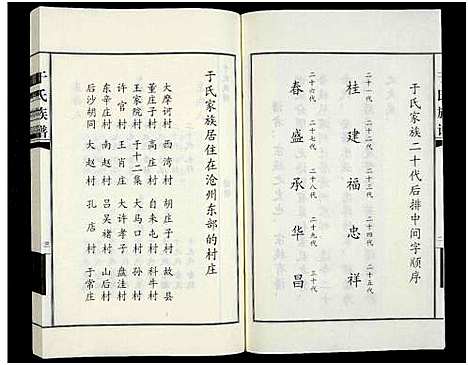 于氏家族二十代后排中间字顺序
二十一代 二十二代 二十三代 二十四代 二十五代
桂 建 福 忠 祥
二十六代 二十七代 二十八代 二十九代 三十代
春 盛 承 华 昌
于氏家族居住在沧州东部的村庄
大摩河村 西湾村 胡庄子村 故县
董庄子村 高庄村 自来屯村 科牛村
王家院村 于十二集 大马口村 孙村
许官村 王肖庄 大许孝子 盘洼村
东辛庄村 吕吴褚村 山后村
后沙胡同 大赵村 孔店村 于常庄
于氏族谱
三